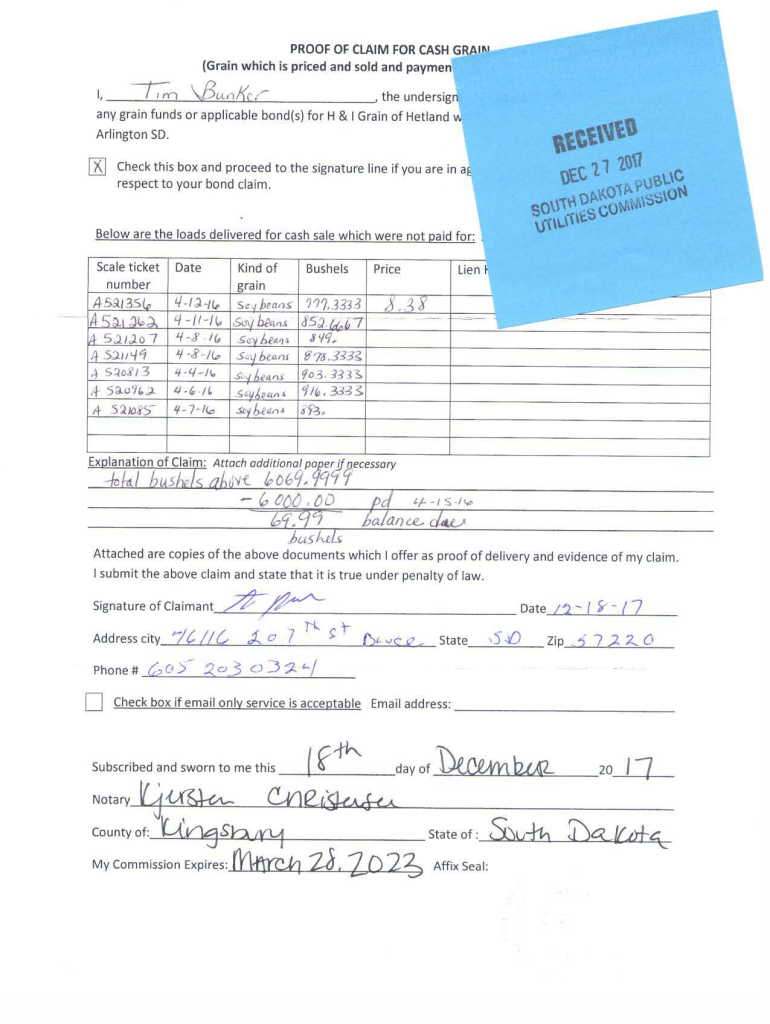 PROOF OF CLAIM FOR CASH GRAIN
(Grain which is priced and sold and paymen
I, Tim Bunker, the undersign
any grain funds or applicable bond(s) for H & I Grain of Hetland w
Arlington SD.
RECEIVED
DEC 27 2017
SOUTH DAKOTA PUBLIC
UTILITIES COMMISSION
X Check this box and proceed to the signature line if you are in ag
respect to your bond claim.
Below are the loads delivered for cash sale which were not paid for:
Scale ticket number Date Kind of grain Bushels Price Lien
A521356 4-12-16 Soybeans 777.3333 8.38
A521262 4-11-16 Soybeans 852.6667
A 521207 4-8-16 Soybeans 849.
A 521149 4-8-16 Soybeans 878.3333
A 520813 4-4-16 Soybeans 903.3333
A 520962 4-6-16 Soybeans 916.3333
A 521085 4-7-16 Soybeans 893.
Explanation of Claim: Attach additional paper if necessary
total bushels above 6069.9999
- 6000.00 pd 4-15-16
69.99 balance due
bushels
Attached are copies of the above documents which I offer as proof of delivery and evidence of my claim.
I submit the above claim and state that it is true under penalty of law.
Signature of Claimant Date 12-18-17
Address city 76116 207TH St Bruce State SD Zip 57220
Phone # 605 2030324
Check box if email only service is acceptable Email address:
Subscribed and sworn to me this 18th day of December 20 17
Notary Kjersten Christensen
County of: Kingsbury State of : South Dakota
My Commission Expires: March 28, 2023 Affix Seal: